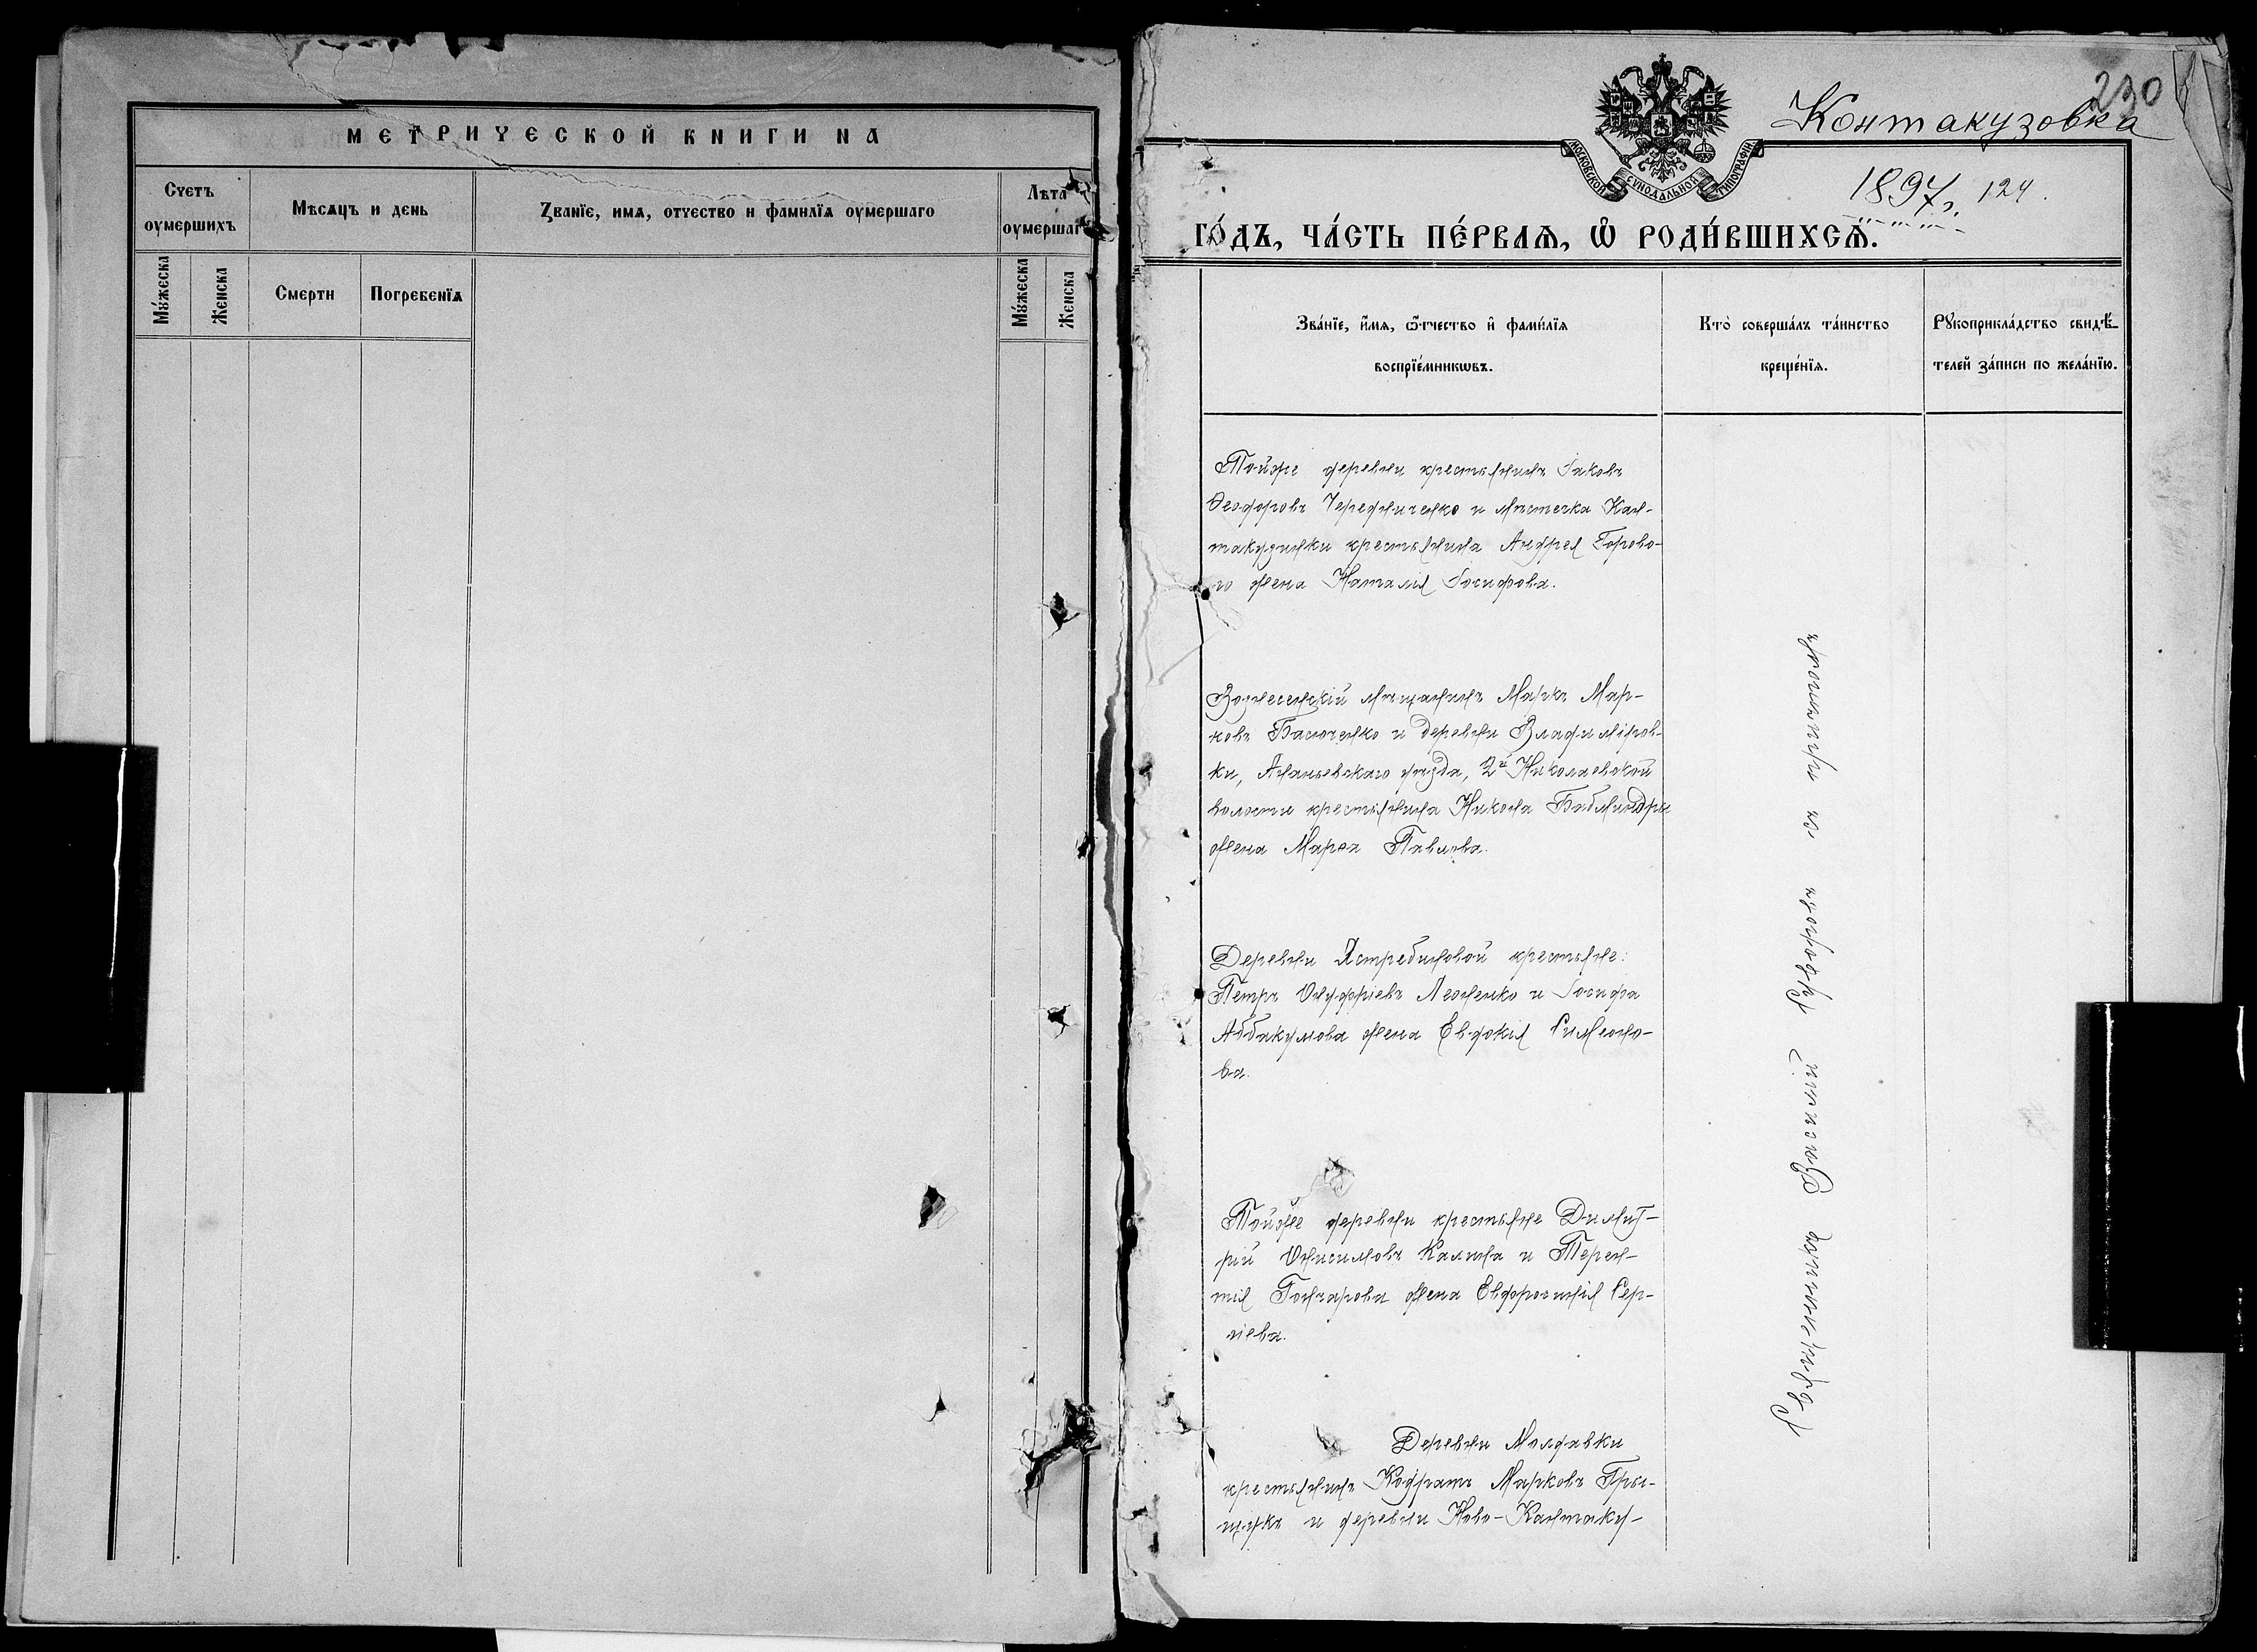 МЕТРИЧЕСКОЙ КНИГИ НА
Счетъ оумершихъ
Мѣсяцъ и день
Званїе, имя, отчество и фамилїя оумершаго
Лѣта оумершаго
Мꙋ́жеска
Женска
Смерти
Погребенїя
Мꙋ́жеска
Женска
230
Контакузовка
МОСКОВСКОЙ СѴНОДАЛЬНОЙ ТИПОГРАФІИ
1897 г. 124.
ГО́ДЪ, ЧА́СТЬ ПЕ́РВАѦ, Ѡ҆ РОДИ́ВШИХСѦ.
Зва́нїе, и҆́мя, ѻ҆́тчество и҆ фами́лїя
воспрїе́мникѡвъ.
Кто̀ соверша́лъ та́инство
креще́нїя.
Рꙋкоприкла́дство свидѣ́-
телей за́писи по жела́нїю.
Тойже деревни крестьянинъ Іаковъ
Ѳеодоровъ Чередниченко и мѣстечка Кан-
такузинки крестьянина Андрея Горово-
го жена Наталія Іосифова.
Вознесенскій мѣщанинъ Маркъ Мар-
ковъ Басюченко и деревни Владиміров-
ки, Ананьевскаго уѣзда, 2й Николаевской
волости крестьянина Никона
жена Марѳа Павлова.
Деревни Ястребиновой крестьяне:
Петръ Онуфріевъ Леоненко и Іосифа
Аббакумова жена Евдокія Симеоно-
ва.
Тойже деревни крестьяне Димит-
рій Онисимовъ Калина и Терен-
тія Гончарова жена Евфросинія Сер-
гіева.
Деревни Молдавки
крестьянинъ Кодратъ Марковъ Гры-
щукъ и деревни Ново-Кантаку-
Священникъ Ѳеодоръ съ причтомъ